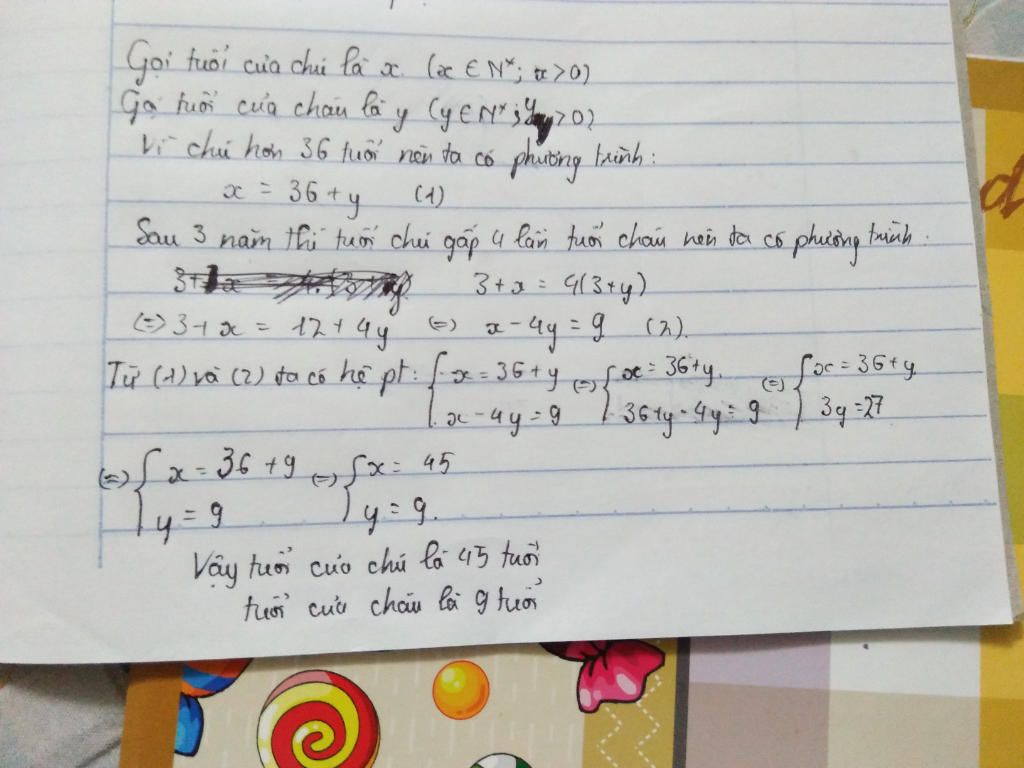 Gọi tuổi của chú là x. (x ∈ N*; x>0)
Gọi tuổi của cháu là y (y ∈ N*; y>0)
Vì chú hơn 36 tuổi nên ta có phương trình:
x = 36 + y (1)
Sau 3 năm thì tuổi chú gấp 4 lần tuổi cháu nên ta có phương trình:
3+x = 4(3+y)
(=) 3+x = 12 + 4y (=) x - 4y = 9 (2).
Từ (1) và (2) ta có hệ pt: { x = 36 + y (=) { x = 36+y. (=) { x = 36 + y
x - 4y = 9 36+y - 4y = 9 3y = 27
(=) { x = 36 + 9 (=) { x = 45
y = 9 y = 9.
Vậy tuổi của chú là 45 tuổi
tuổi của cháu là 9 tuổi